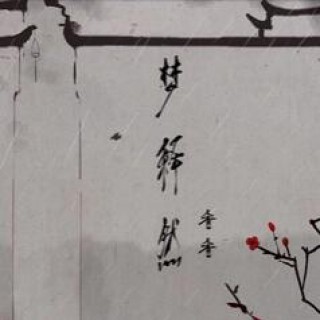 梦释然
香香